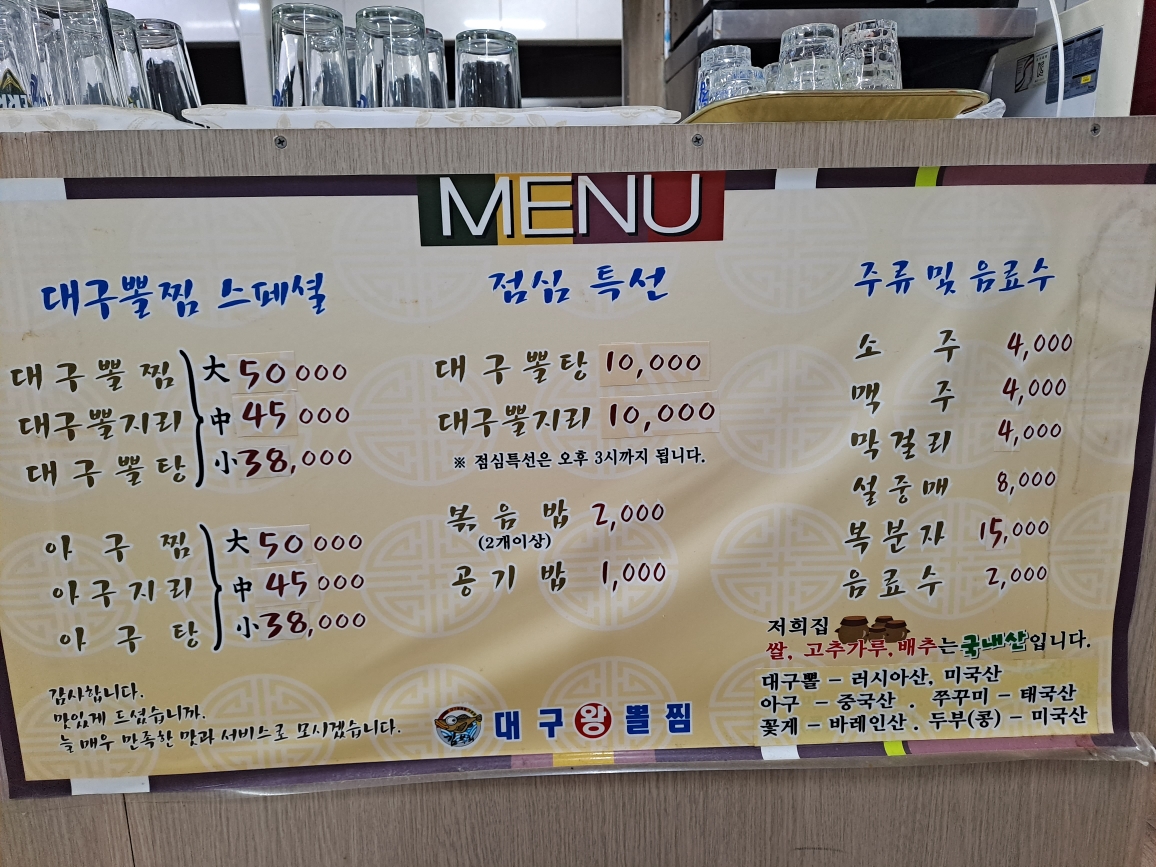 MENU
대구뽈찜 스페셜
대구뽈찜
대구뽈지리
대구뽈탕
大 50000
中 45000
小 38,000
아구찜
아구지리
아구탕
大 50000
中 45000
小 38,000
감사합니다.
맛있게 드셨습니까.
늘 매우 만족한 맛과 서비스로 모시겠습니다.
점심 특선
대구뽈탕 10,000
대구뽈지리 10,000
※ 점심특선은 오후 3시까지 됩니다.
볶음밥 2,000
(2개이상)
공기밥 1,000
대구왕뽈찜
주류 및 음료수
소주 4,000
맥주 4,000
막걸리 4,000
설중매 8,000
복분자 15,000
음료수 2,000
저희집
쌀, 고추가루, 배추는 국내산입니다.
대구뽈 - 러시아산, 미국산
아구 - 중국산 . 쭈꾸미 - 태국산
꽃게 - 바레인산 . 두부(콩) - 미국산